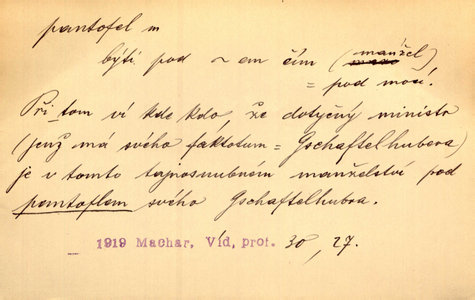 pantofel m
býti pod ~ em čím (manžel),
= pod mocí.
Při tom ví kde kdo, že dotyčný ministr
(jenž má svého faktotum = Gschaftelhubera)
je v tomto tajnosnubném manželství pod
pantoflem svého Gschaftelhubra.
1919 Machar, Víd, prof. 30, 27.